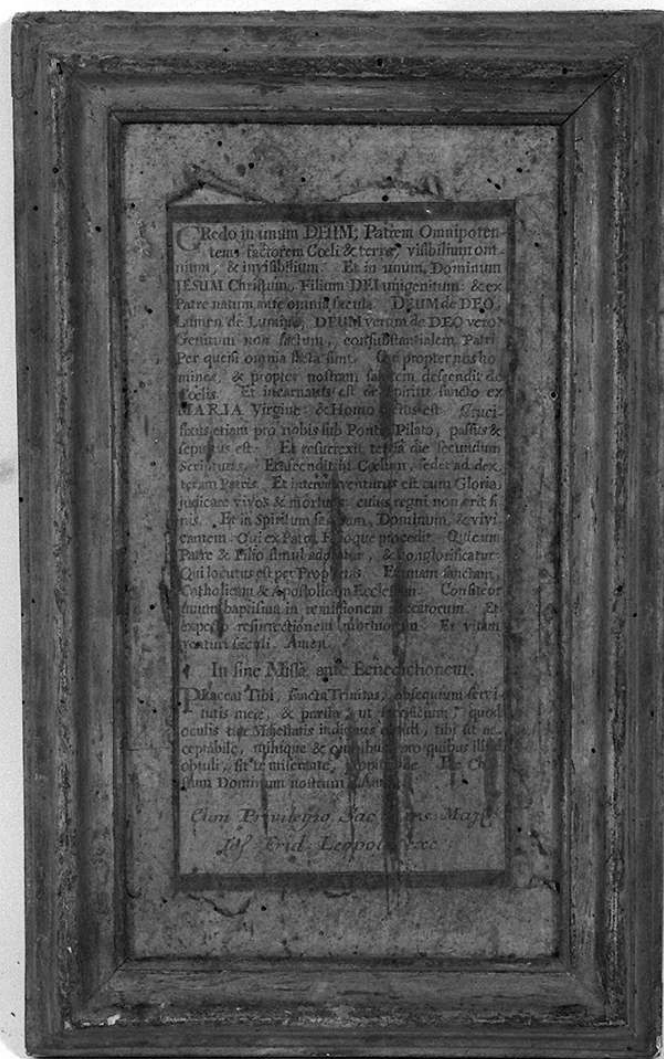 CRedo in unum DEUM; Patrem Omnipoten-
tem, factorem Cœli & terræ, visibilium om-
nium, & invisibilium. Et in unum Dominum
JESUM Christum, Filium DEI unigenitum: & ex
Patre natum ante omnia sæcula. DEUM de DEO,
Lumen de Lumine, DEUM verum de DEO vero.
Genitum non factum, consubstantialem Patri
Per quem omnia facta sunt. Qui propter nos ho
mines, & propter nostram salutem descendit de
Cœlis. Et incarnatus est de Spiritu sancto ex
MARIA Virgine: & Homo factus est. Cruci-
fixus etiam pro nobis sub Pontio Pilato, passus &
sepultus est. Et resurrexit tertia die secundum
Scripturas. Et ascendit in Cœlum, sedet ad dex
teram Patris. Et iterum venturus est cum Gloria
judicare vivos & mortuos: cujus regni non erit fi
nis. Et in Spiritum sanctum, Dominum, & vivi
cantem. Qui ex Patre, Filioque procedit. Qui cum
Patre & Filio simul adoratur, & conglorificatur.
Qui locutus est per Prophetas. Et unam sanctam,
Catholicam & Apostolicam Ecclesiam. Confiteor
unum baptisma in remissionem peccatorum. Et
expecto resurrectionem mortuorum. Et vitam
venturi sæculi. Amen.
In fine Missæ ante Benedictionem.
PLaceat Tibi, sancta Trinitas, obsequium servi-
tutis meæ, & præsta, ut sacrificium, quod
oculis tuæ Majestatis indignus obtuli, tibi sit ac-
ceptabile, mihique & omnibus, pro quibus illud
obtuli, sit te miserante, Per Chri
stum Dominum nostrum. Amen.
Cum Privilegio Sac. Maj.
Frid. Leopold exc.